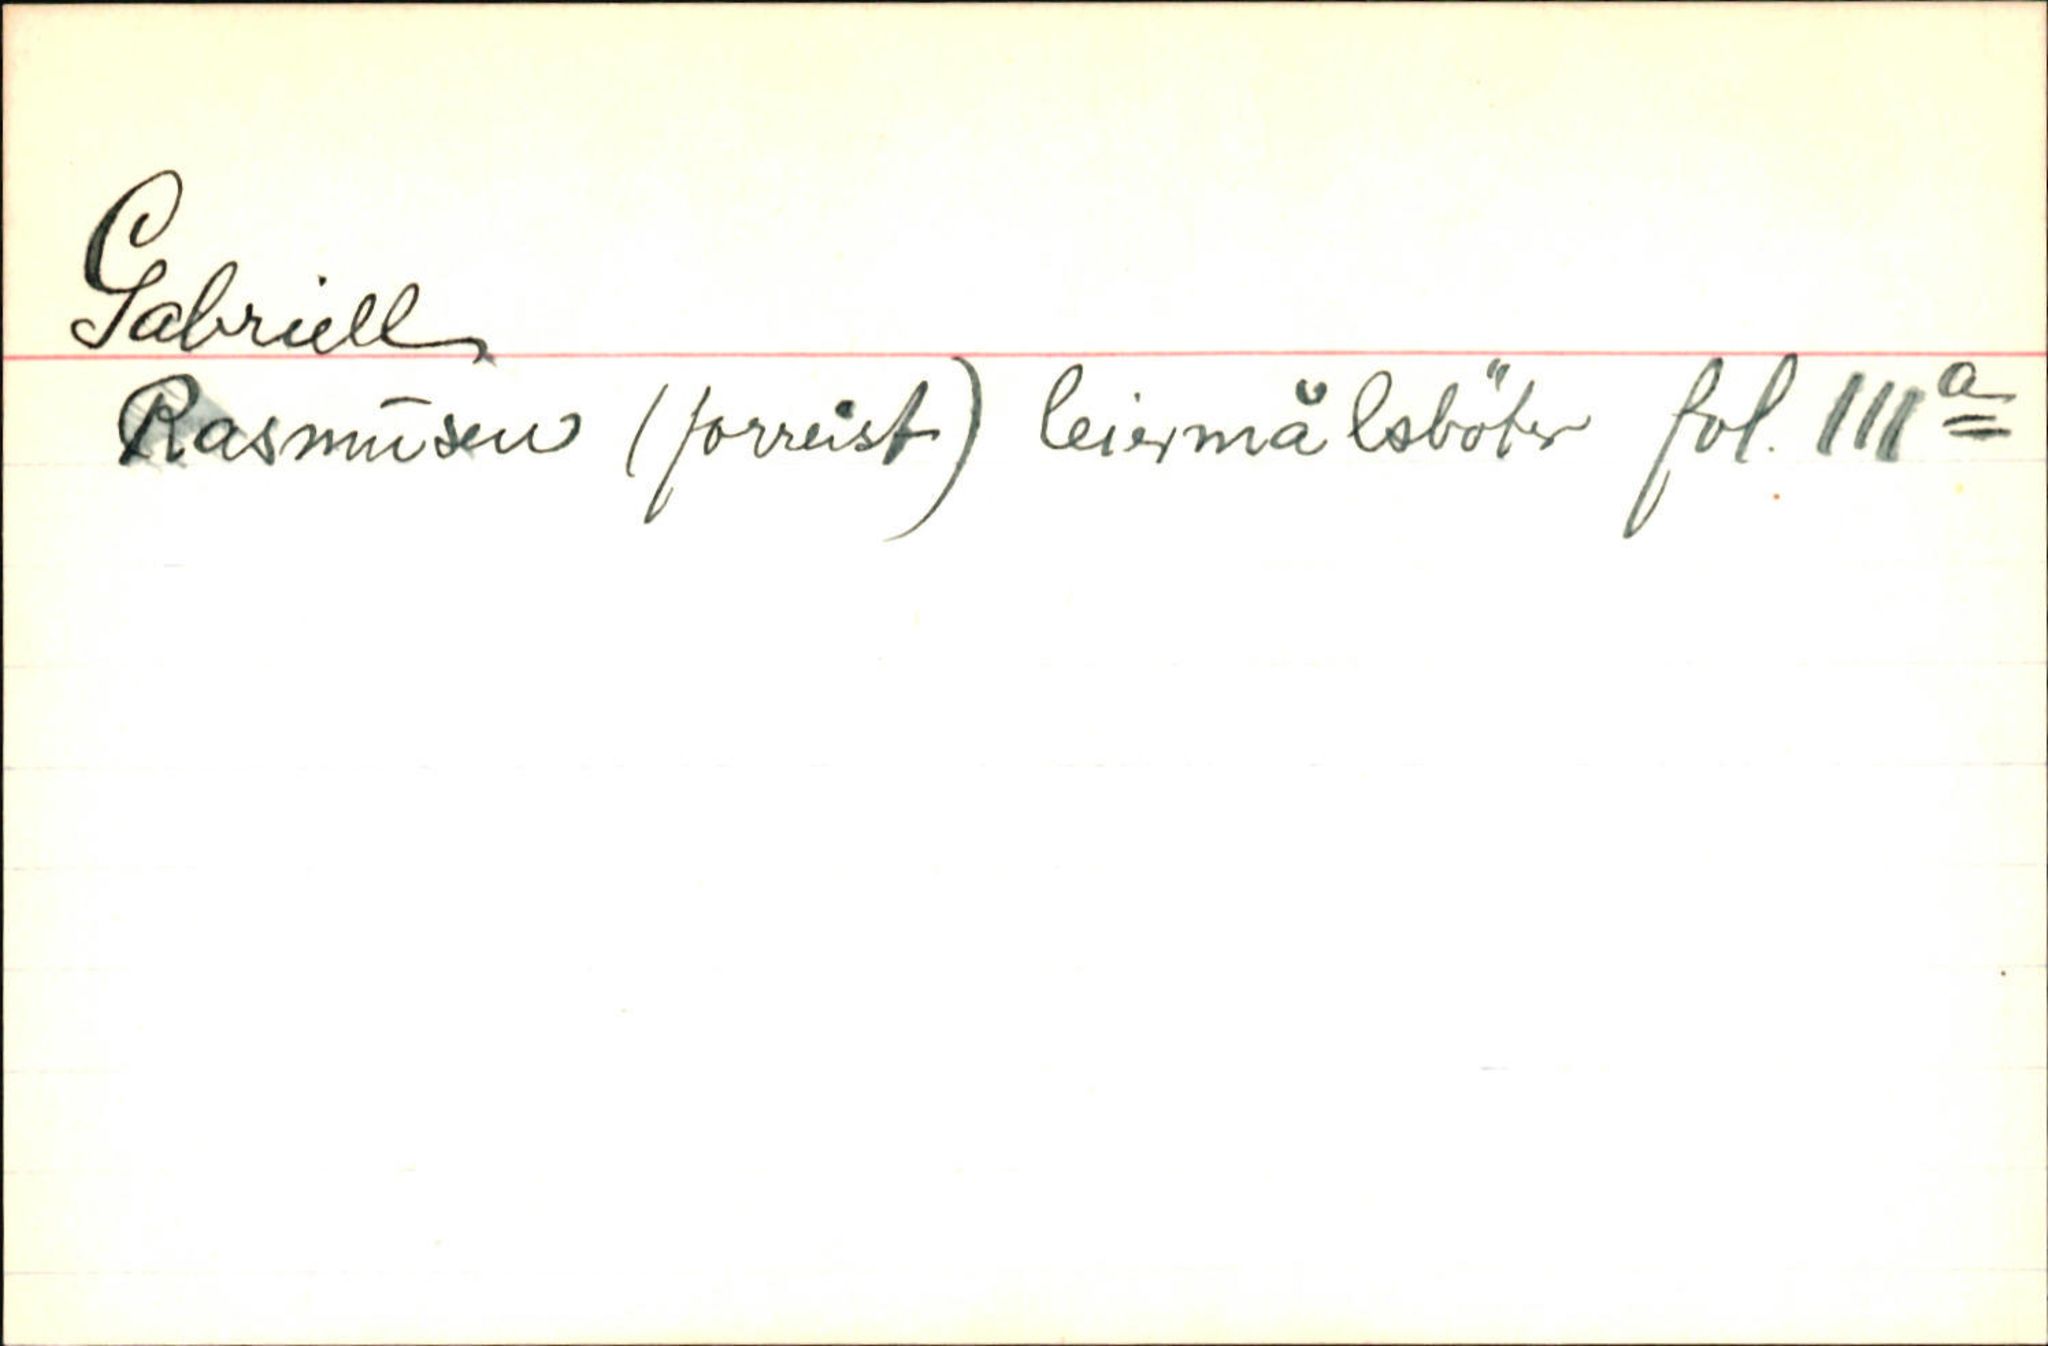 Gabriell
Rasmusen (forreist) leiermålsböter fol. 111a